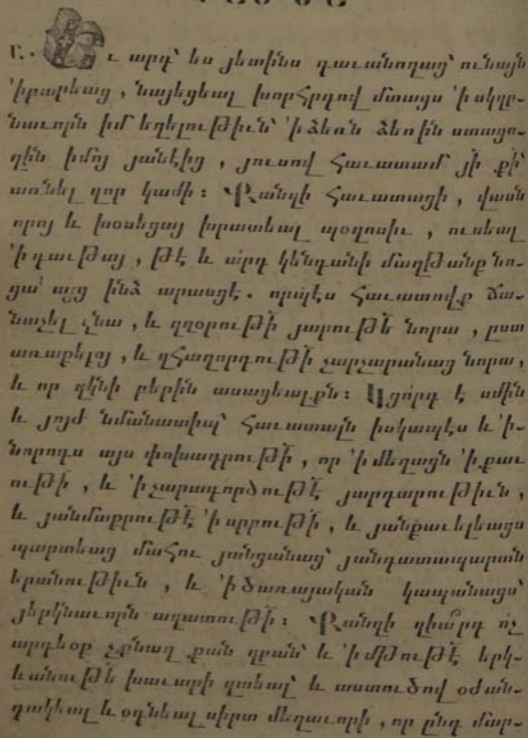 Եւ արդ՝ ես յետինս դաւանողաց՝ ունայն
՚իբարեաց, նայեցեալ խորհրդով մտացս ՚ի սկզբ-
նաւորն իմ եղելութիւն՝ ՚ի ձեռն ձեռին ստացո-
ղին իմոյ յանէից, յուսով հաւատամ յի քի
առնել զոր կամի։ Քանզի հաւատացի, վասն
որոյ և խօսեցայ խրատեալ պօղոսիւ, ուսեալ
՚ի դաւթայ, թէ և արդ կենդանի մաղթանք նո-
ցա՝ այց ինձ արասցէ. որպէս հաւատովք ճա-
նաչել զնա, և զզօրութի յարութե նորա, ըստ
առաքելոյ, և զհաղորդութի չարչարանաց նորա,
և որ զկնի բերին ասացեալքն։ Կցորդ է ամին
և յոյժ նմանատիպ՝ հաւատալն իսկապէս և ՚ի-
նորոգս այս փոխադրութի, որ ՚ի մեղացն ՚ի քաւ
ութի, և ՚ի չարագործութէ յարդարութիւն,
և յանմաքրութէ ՚ի սրբութի, և յանքաւելեացս
պարտեաց մահու յանցանաց՝ յանդատապարան
երանութիւն, և ՚ի ծառայական կապանացս՝
յերկնաւորն ազատութի։ Քանզի զիա՞րդ ոչ
արդեօք չքնաղ քան զբան՝ և ՚ի մթութէ երկ-
ևանութե խաւարի զատեալ՝ և աստուծով օժան-
դակեալ և օգնեալ սիրտ մեղաւորի, որ ընդ մար-